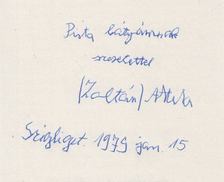 Pista bátyámnak
szeretettel
(Zoltán) Attila
Szigliget 1979 jan. 15